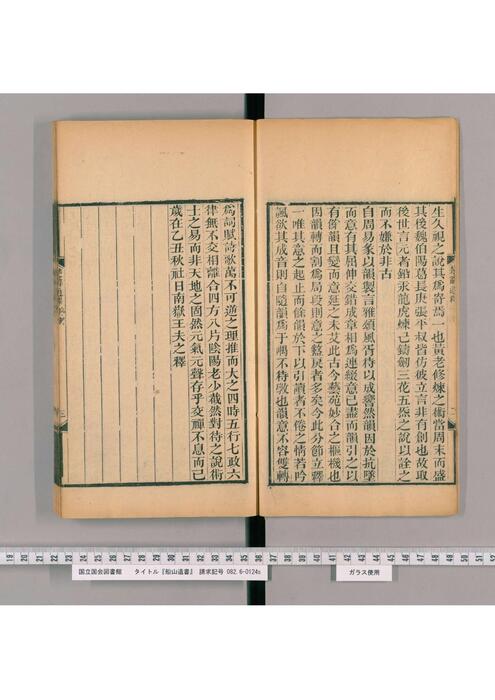 生久視之說其爲奇焉一也黃老修煉之術當周末而盛
其後魏伯陽葛長庚張平叔皆仿彼立言非有創也故取
後世言元者鉛汞龍虎煉己鑄劍三花五炁之說以詮之
而不嫌於非古
自周易彖以韻製言雅頌風胥待以成響然韻因於抗墜
而意有其屈伸交錯成章相爲連綴意已盡而韻引之以
有餘韻且變而意延之未艾此古今藝苑妙合之樞機也
因韻轉而割爲局段則意之盭戾者多矣今此分節立釋
一唯其意之起止而餘韻於下以引讀者不倦之情若吟
諷欲其成音則自隨韻爲于喁不待敎也韻意不容雙轉
爲詞賦詩歌萬不可逆之理推而大之四時五行七政六
律無不交相離合四方八片陰陽老少截然對待之說術
士之易而非天地之固然元氣元聲存乎交禪不息而已
歲在乙丑秋社日南嶽王夫之釋
国立国会図書館 タイトル『船山遺書』 請求記号 082.6-0124s
ガラス使用